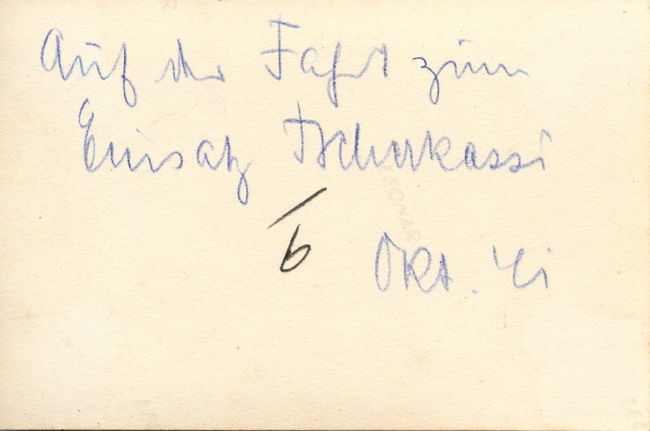 Auf der Fahrt zum
Einsatz Tscherkassi
6
Okt. 41